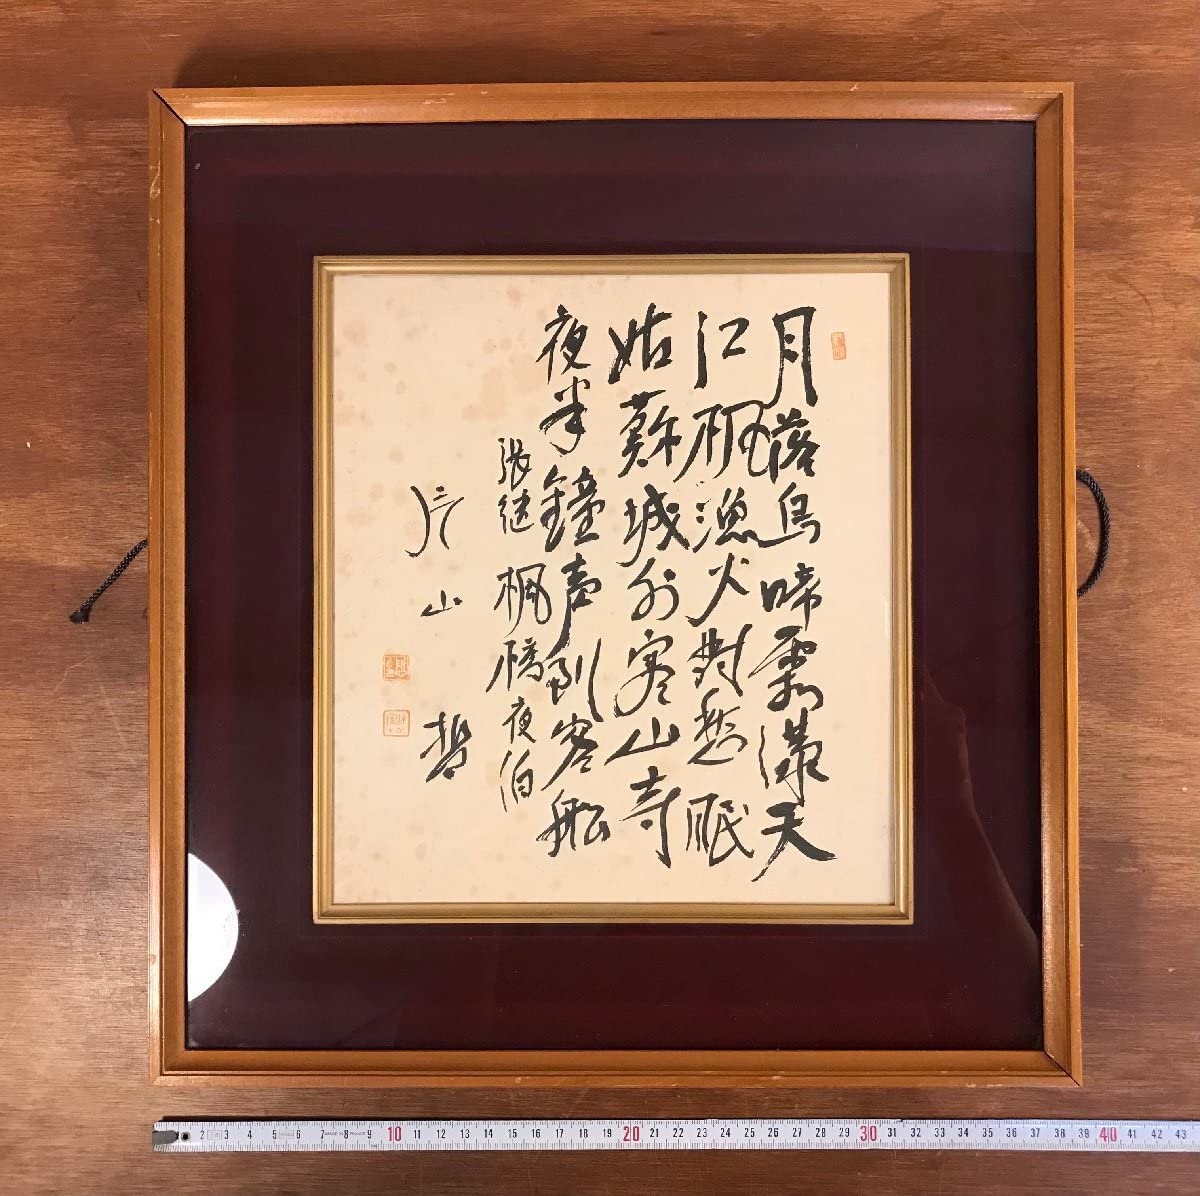 月落烏啼霜満天
江楓漁火對愁眠
姑蘇城外寒山寺
夜半鐘声到客船
張継 楓橋夜泊
片山哲
2 3 4 5 6 7 8 9 10 11 12 13 14 15 16 17 18 19 20 21 22 23 24 25 26 27 28 29 30 31 32 33 34 35 36 37 38 39 40 41 42 43